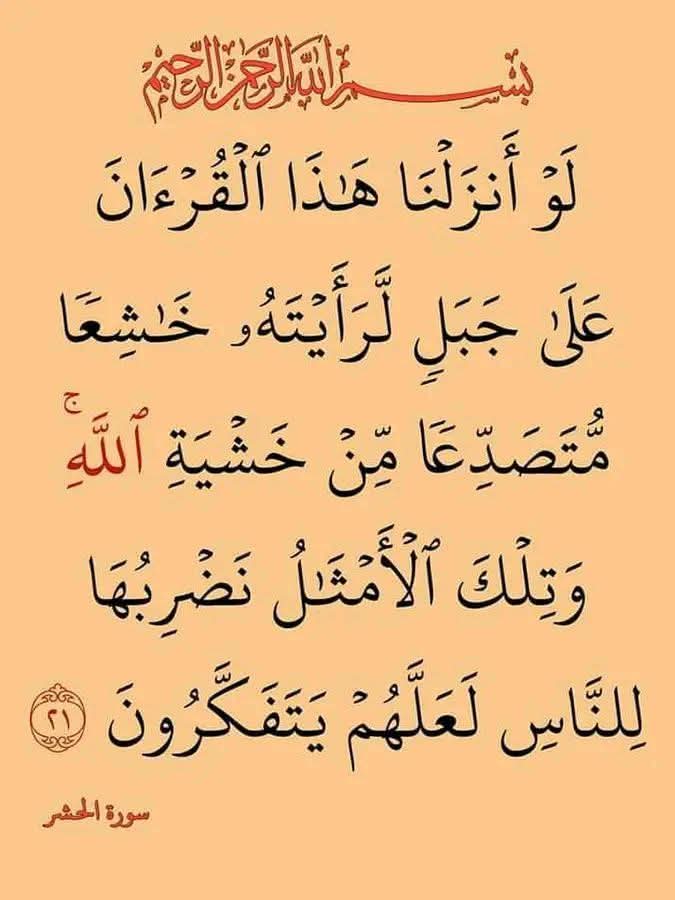 بسم الله الرحمن الرحيم
لَوْ أَنزَلْنَا هَٰذَا ٱلْقُرْءَانَ
عَلَىٰ جَبَلٍ لَّرَأَيْتَهُۥ خَٰشِعًا
مُّتَصَدِّعًا مِّنْ خَشْيَةِ ٱللَّهِ ۚ
وَتِلْكَ ٱلْأَمْثَٰلُ نَضْرِبُهَا
لِلنَّاسِ لَعَلَّهُمْ يَتَفَكَّرُونَ ٢١
سورة الحشر